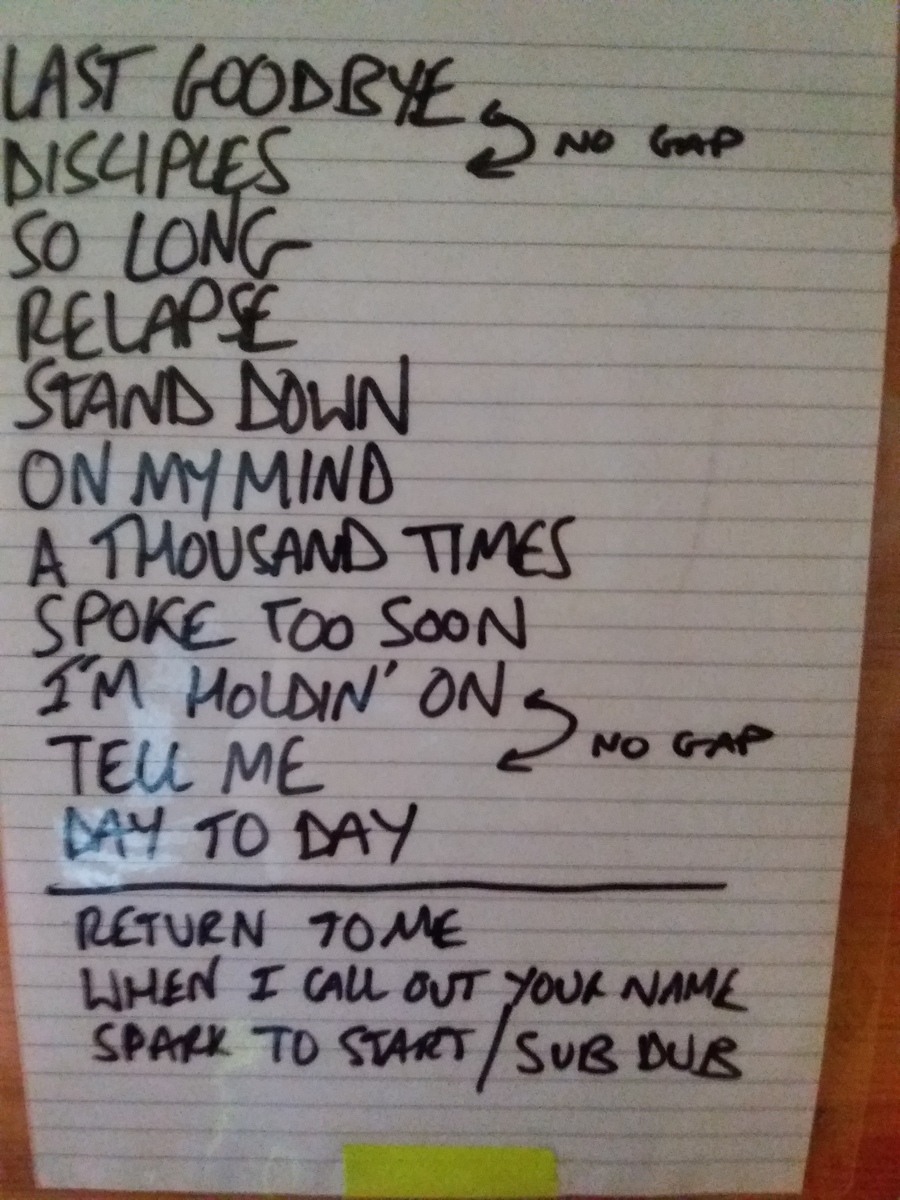 LAST GOODBYE
NO GAP
DISCIPLES
SO LONG
RELAPSE
STAND DOWN
ON MY MIND
A THOUSAND TIMES
SPOKE TOO SOON
I'M HOLDIN' ON
NO GAP
TELL ME
DAY TO DAY
RETURN TO ME
WHEN I CALL OUT YOUR NAME
SPARK TO START / SUB DUB